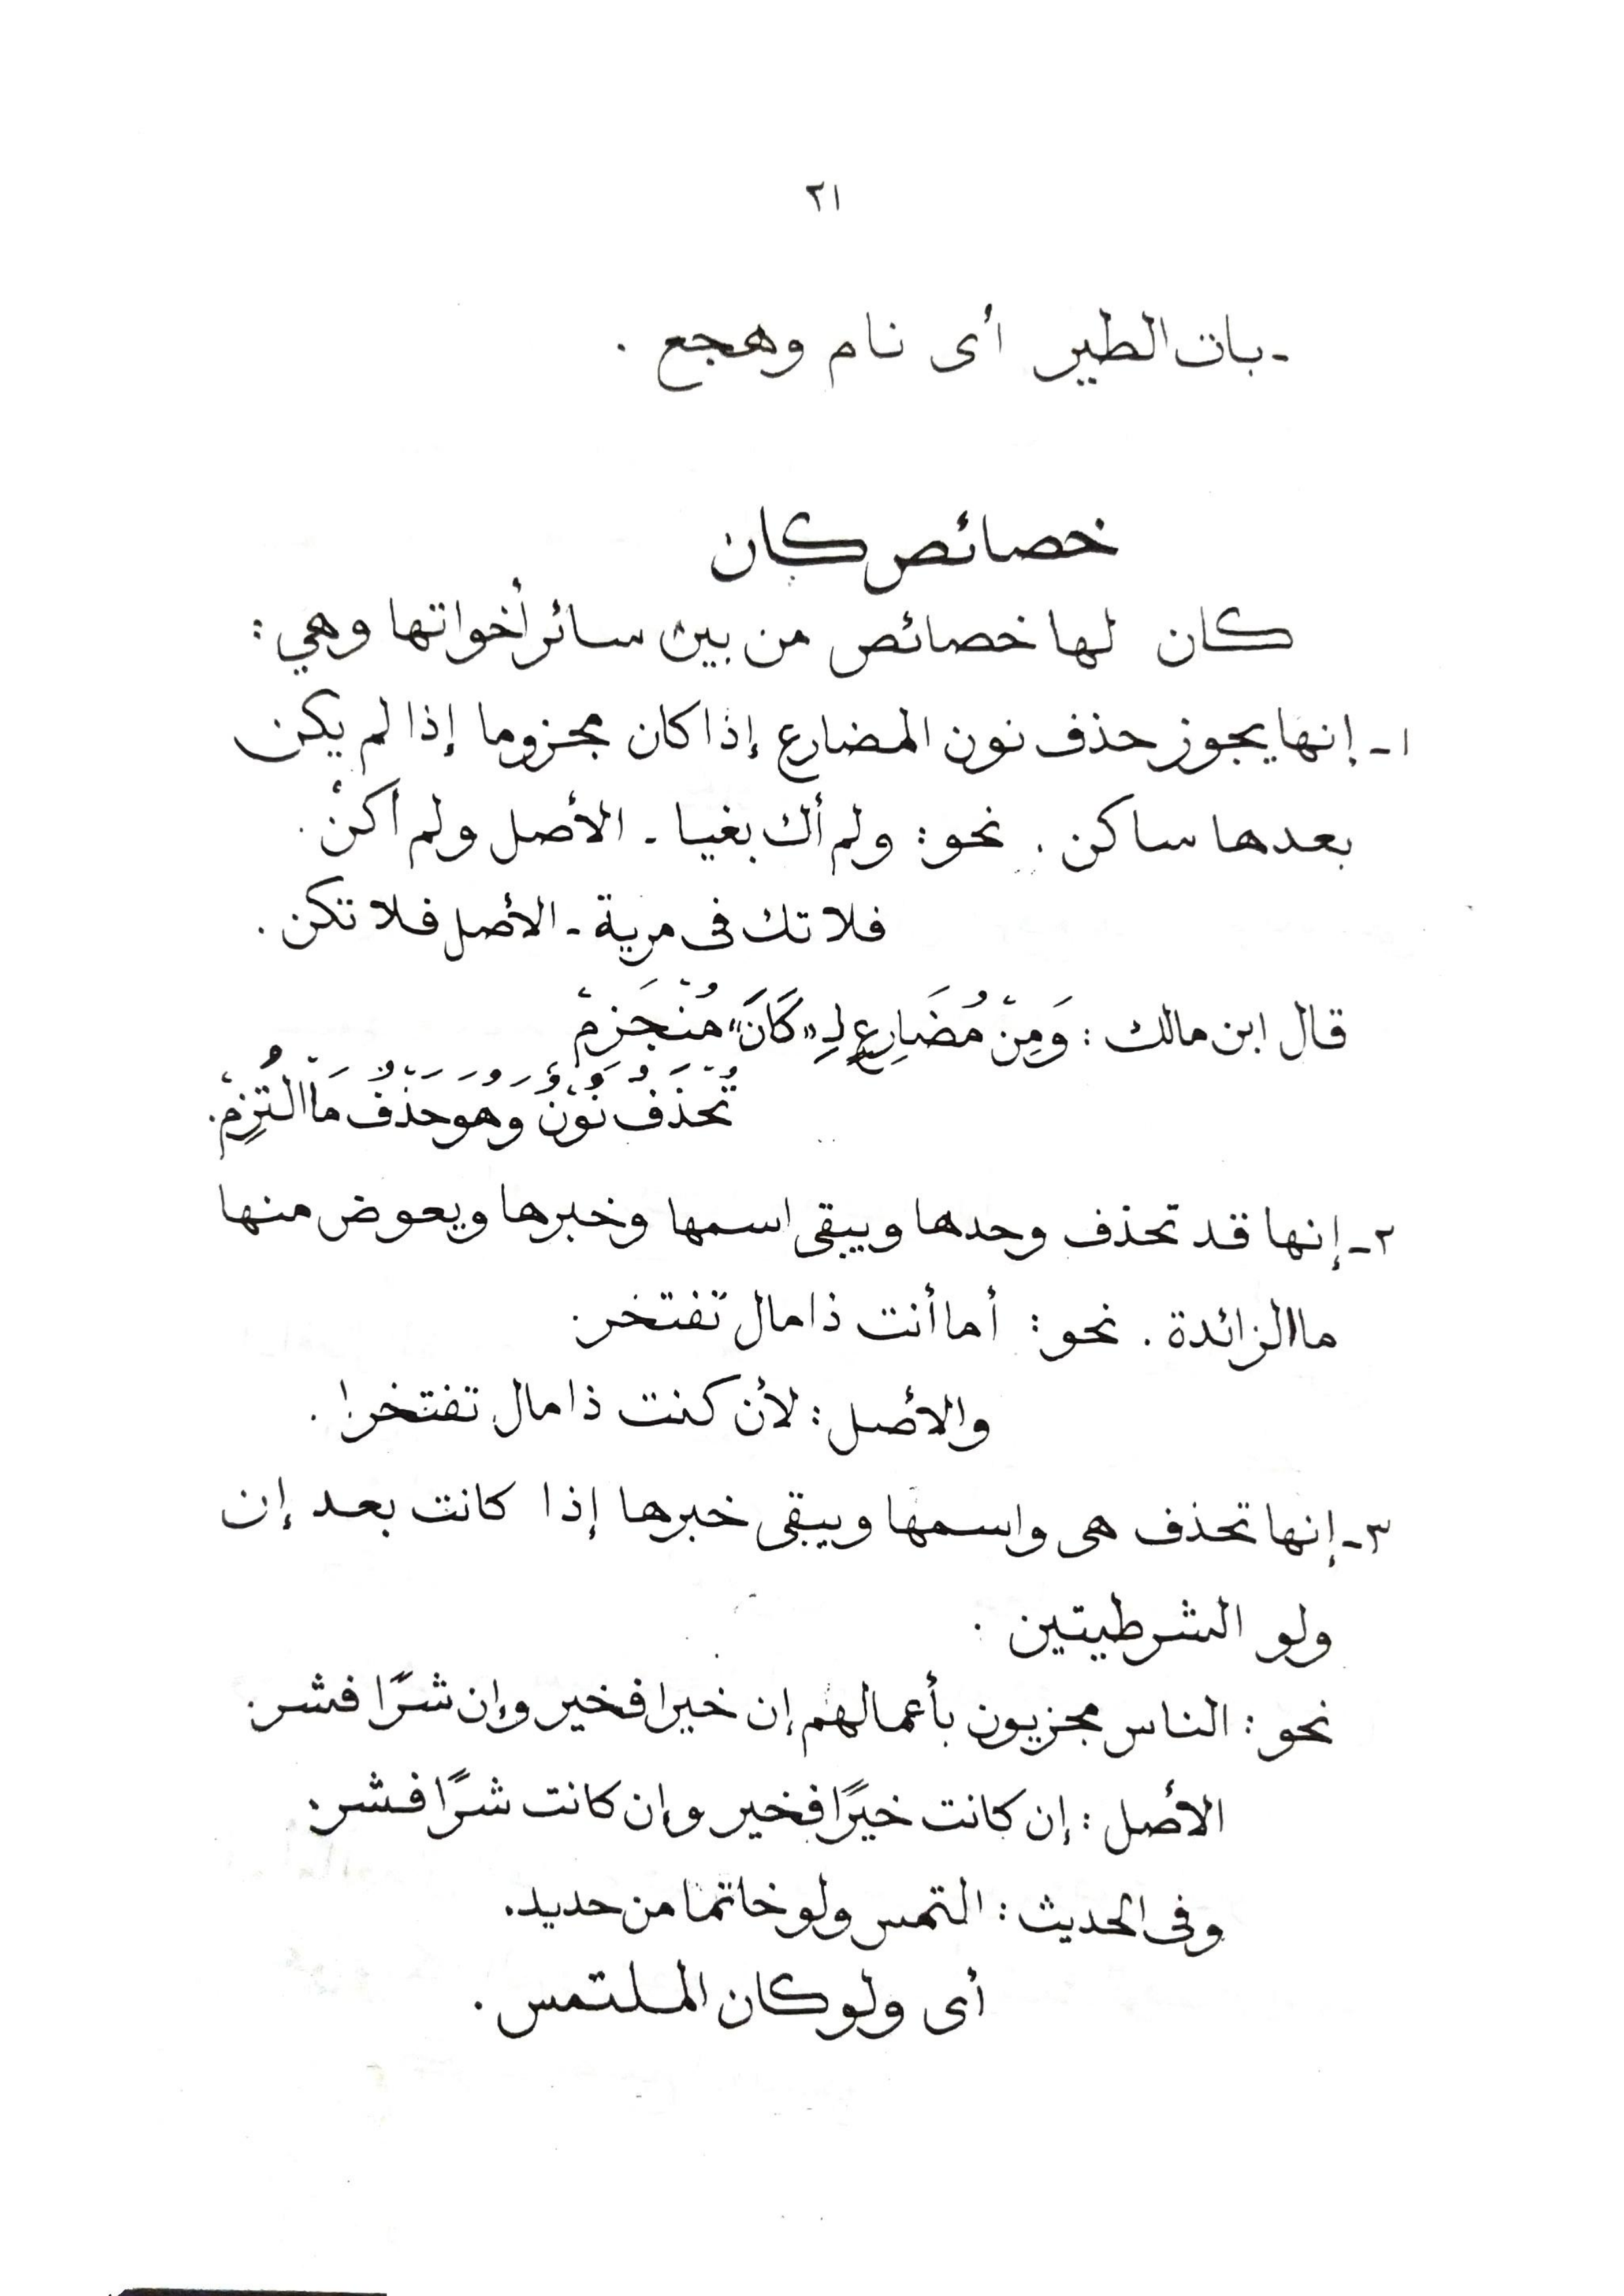 ٢١
ـ بات الطير أى نام وهجع .
خصائص كان
كان لها خصائص من بين سائر أخواتها وهي :
١ـ إنها يجوز حذف نون المضارع إذا كان مجزوما إذا لم يكن
بعدها ساكن . نحو : ولم أك بغيا ـ الأصل ولم أكنْ .
فلا تك فى مرية ـ الأصل فلا تكن .
قال ابن مالك : وَمِنْ مُضَارِعٍ لِـ «كَانَ» مُنْجَزِمْ
تُحْذَفُ نُوْنٌ وَهُوَ حَذْفٌ مَا الْتُزِمْ .
٢ـ إنها قد تحذف وحدها ويبقى اسمها وخبرها ويعوض منها
ما الزائدة . نحو : أما أنت ذا مال تفتخر .
والأصل : لأن كنت ذا مال تفتخر ! .
٣ـ إنها تحذف هى واسمها ويبقى خبرها إذا كانت بعد إن
ولو الشرطيتين .
نحو : الناس مجزيون بأعمالهم إن خيرا فخير وإن شرًا فشر .
الأصل : إن كانت خيرًا فخير وإن كانت شرًا فشر .
وفى الحديث : التمس ولو خاتما من حديد .
أى ولو كان الملتمس .